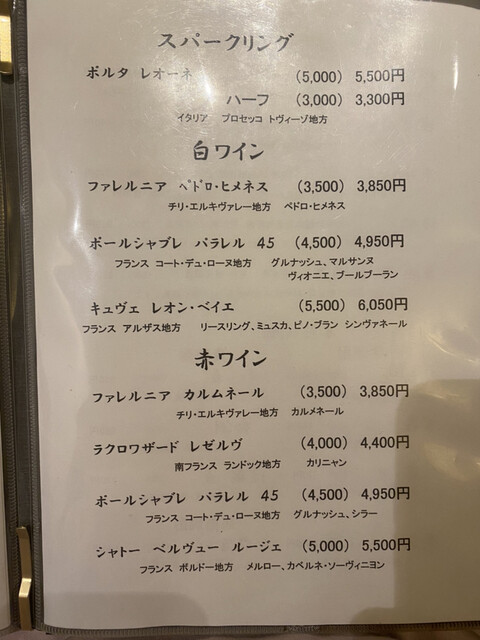 スパークリング
ボルタ レオーネ (5,000) 5,500円
ハーフ (3,000) 3,300円
イタリア プロセッコ トヴィーゾ地方
白ワイン
ファレルニア ペドロ・ヒメネス (3,500) 3,850円
チリ・エルキヴァレー地方 ペドロ・ヒメネス
ポールシャブレ パラレル 45 (4,500) 4,950円
フランス コート・デュ・ローヌ地方 グルナッシュ、マルサンヌ
ヴィオニエ、ブールブーラン
キュヴェ レオン・ベイエ (5,500) 6,050円
フランス アルザス地方 リースリング、ミュスカ、ピノ・ブラン シンヴァネール
赤ワイン
ファレルニア カルムネール (3,500) 3,850円
チリ・エルキヴァレー地方 カルメネール
ラクロワザード レゼルヴ (4,000) 4,400円
南フランス ランドック地方 カリニャン
ポールシャブレ パラレル 45 (4,500) 4,950円
フランス コート・デュ・ローヌ地方 グルナッシュ、シラー
シャトー ベルヴュー ルージェ (5,000) 5,500円
フランス ボルドー地方 メルロー、カベルネ・ソーヴィニヨン